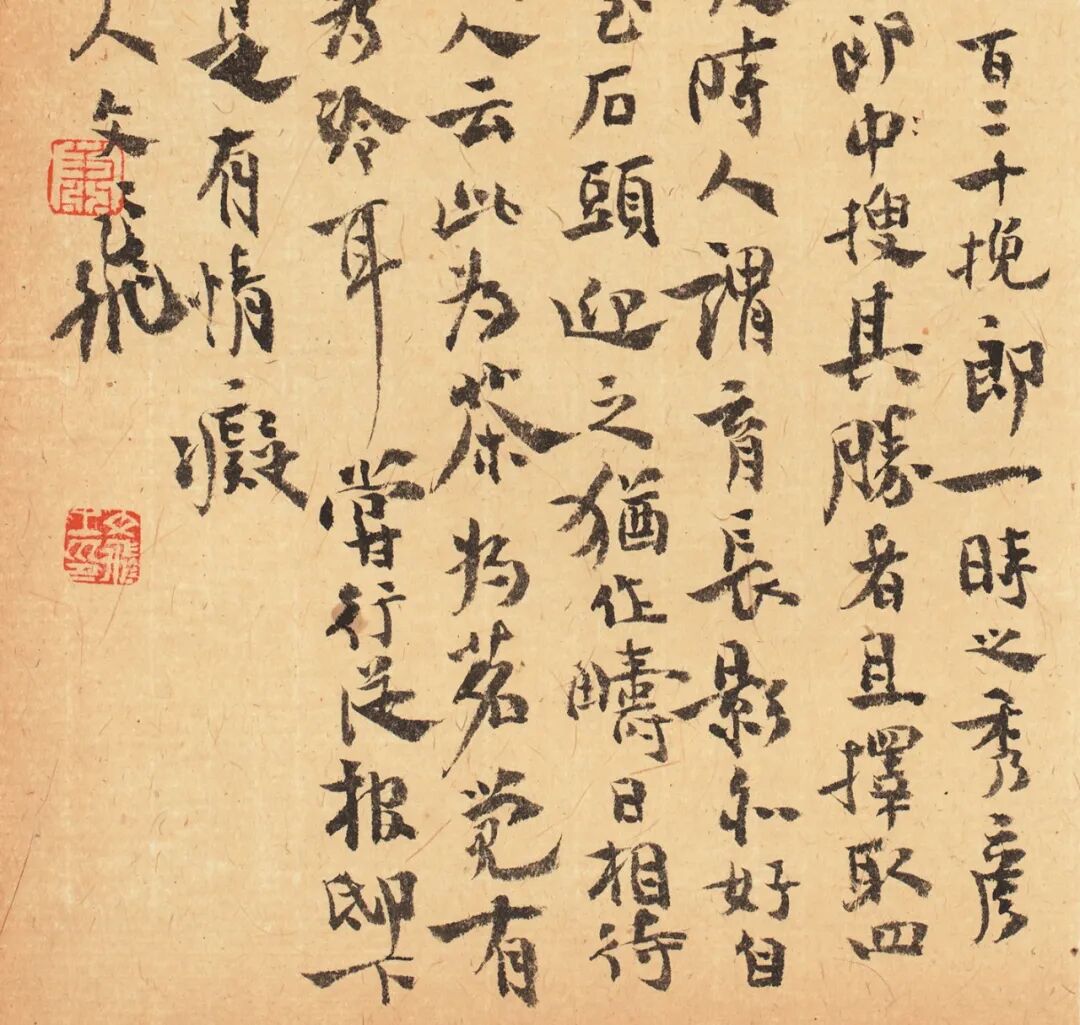 百二十挽郎一時之秀彥
郎中搜其勝者且擇取四
時人謂育長影亦好自
至石頭迎之猶作疇日相待
人云此為茶為茗覺有
為冷耳嘗行從邸下
是有情癡
人文飛